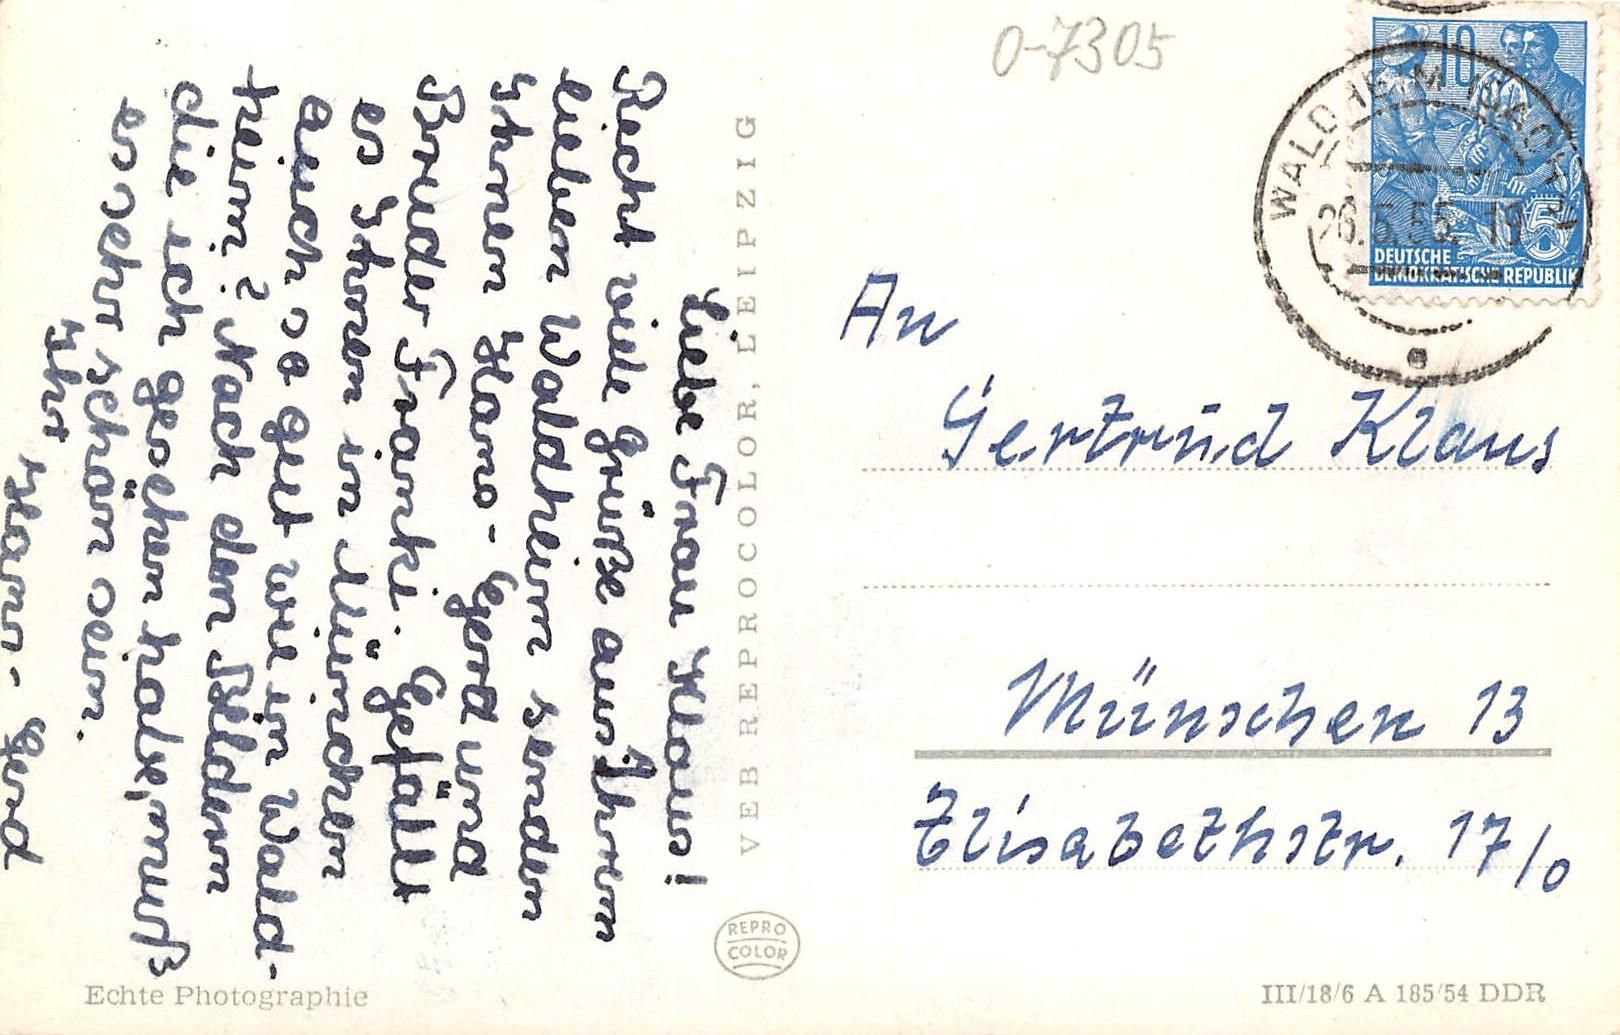 Liebe Frau Klaus!
Recht viele Grüße aus Ihrem
lieben Waldheim senden
Ihnen Hans-Gerd und
Bruder Franki. Gefällt
es Ihnen in München
auch so gut wie in Wald-
heim? Nach den Bildern
die ich gesehen habe, muß
es sehr schön sein.
Ihr
Hans-Gerd
VEB REPROCOLOR, LEIPZIG
REPRO
COLOR
Echte Photographie
0-7305
10
WALDHEIM (SACHS)
26.5.55. 19
5
DEUTSCHE
DEMOKRATISCHE REPUBLIK
a
An
Gertrud Klaus
München 13
Elisabethstr. 17/0
III/18/6 A 185/54 DDR